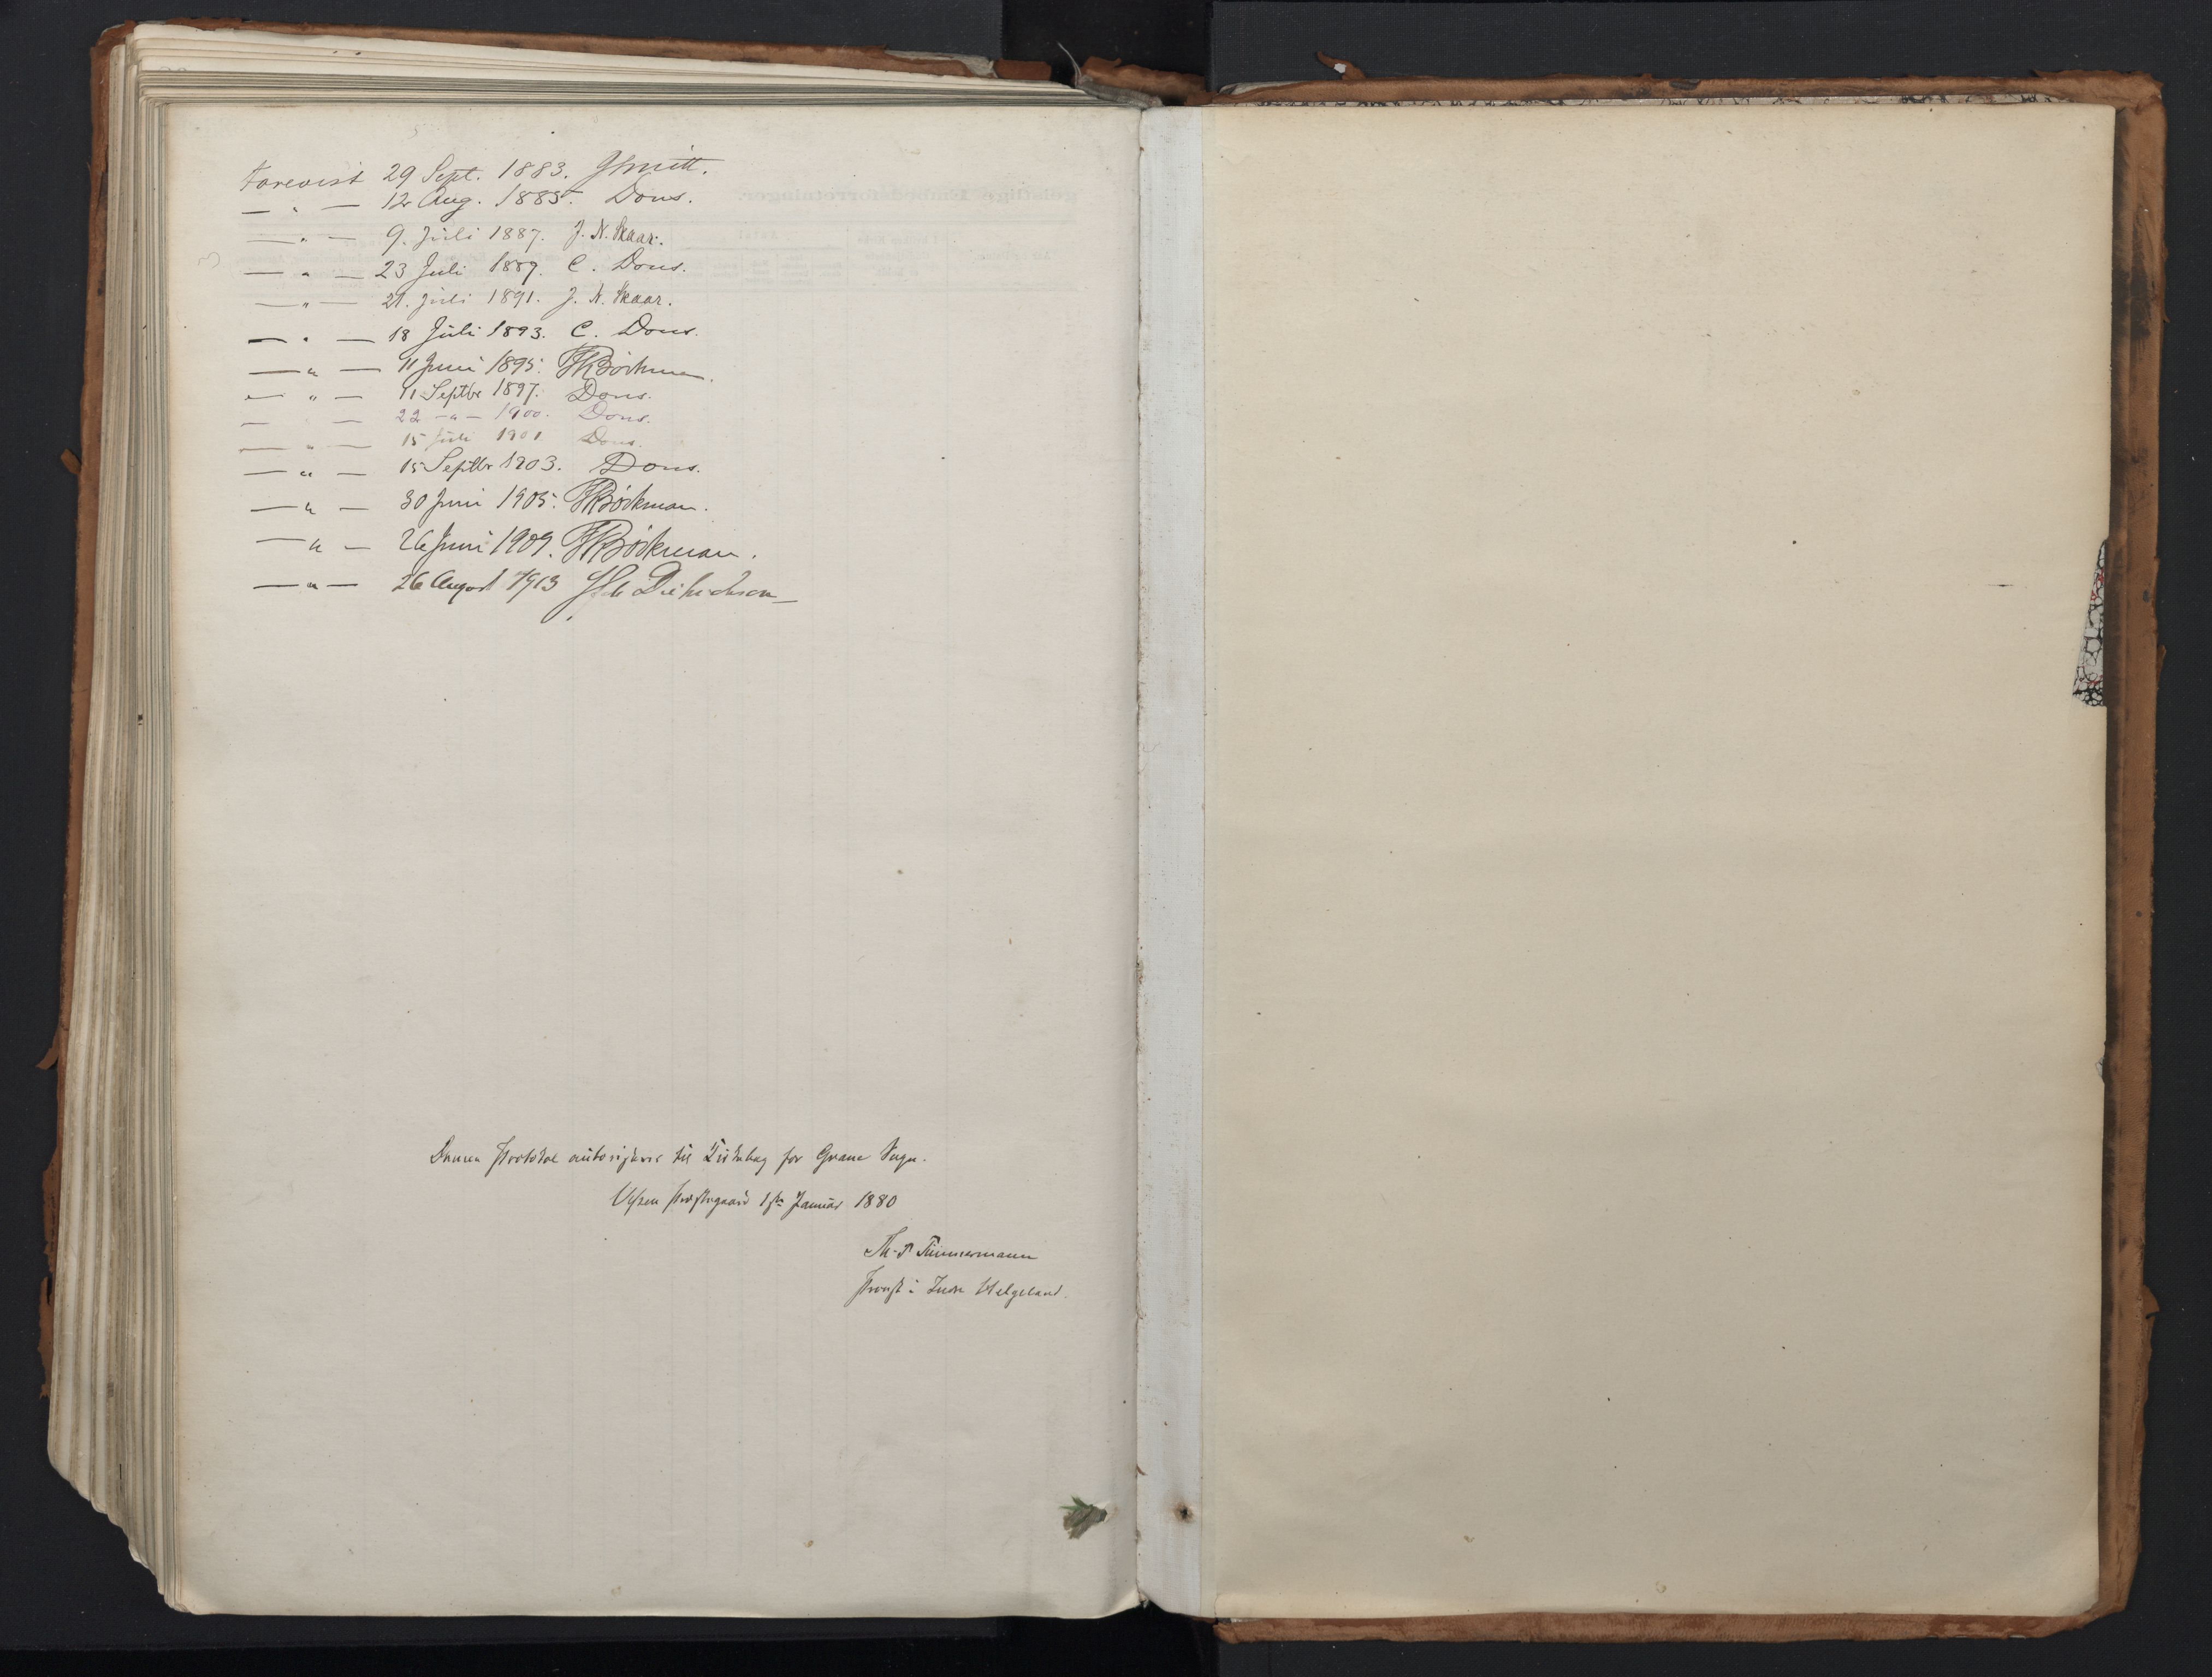 Forevist 29 Sept. 1883. JSmitt.
— " — 12 Aug. 1885. Dons.
— " — 9. Juli 1887. J. N. Skaar.
— " — 23 Juli 1889. C. Dons.
— " — 21. Juli 1891. J. N. Skaar.
— " — 18 Juli 1893. C. Dons.
— " — 11 Juni 1895. Bøckman.
— " — 11 Septbr 1897. Dons.
— — 22 - " - 1900. Dons.
— " — 15 Juli 1901 Dons.
— " — 15 Septbr 1903. Dons.
— " — 30 Juni 1905. Bøckman.
— " — 26 Juni 1909. Bøckman.
— " — 26 August 1913 Dietrichson
Denne Protokol autoriseres til Kirkebog for Grane Sogn.
Vefsen Præstegaard 1ste Januar 1880
Th. P. Timmermann
Provst i Indre Helgeland.